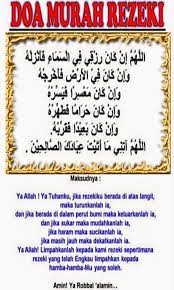 DOA MURAH REZEKI
اَللّٰهُمَّ إِنْ كَانَ رِزْقِي فِي السَّمَاءِ فَأَنْزِلْهُ
وَإِنْ كَانَ فِي الْأَرْضِ فَأَخْرِجْهُ
وَإِنْ كَانَ مُعَسَّرًا فَيَسِّرْهُ
وَإِنْ كَانَ حَرَامًا فَطَهِّرْهُ
وَإِنْ كَانَ بَعِيْدًا فَقَرِّبْهُ
اَللّٰهُمَّ آتِنِي مَا آتَيْتَ عِبَادَكَ الصَّالِحِيْنَ .
Maksudnya :
Ya Allah ! Ya Tuhanku, jika rezekiku berada di atas langit,
maka turunkanlah ia,
dan jika berada di dalam perut bumi maka keluarkanlah ia,
dan jika sukar maka mudahkanlah ia,
jika haram maka sucikanlah ia,
jika masih jauh maka dekatkanlah ia.
Ya Allah! Limpahkanlah kepada kami rezeki sepertimana
rezeki yang telah Engkau limpahkan kepada
hamba-hamba-Mu yang soleh.
Amin! Ya Robbal 'alamin...